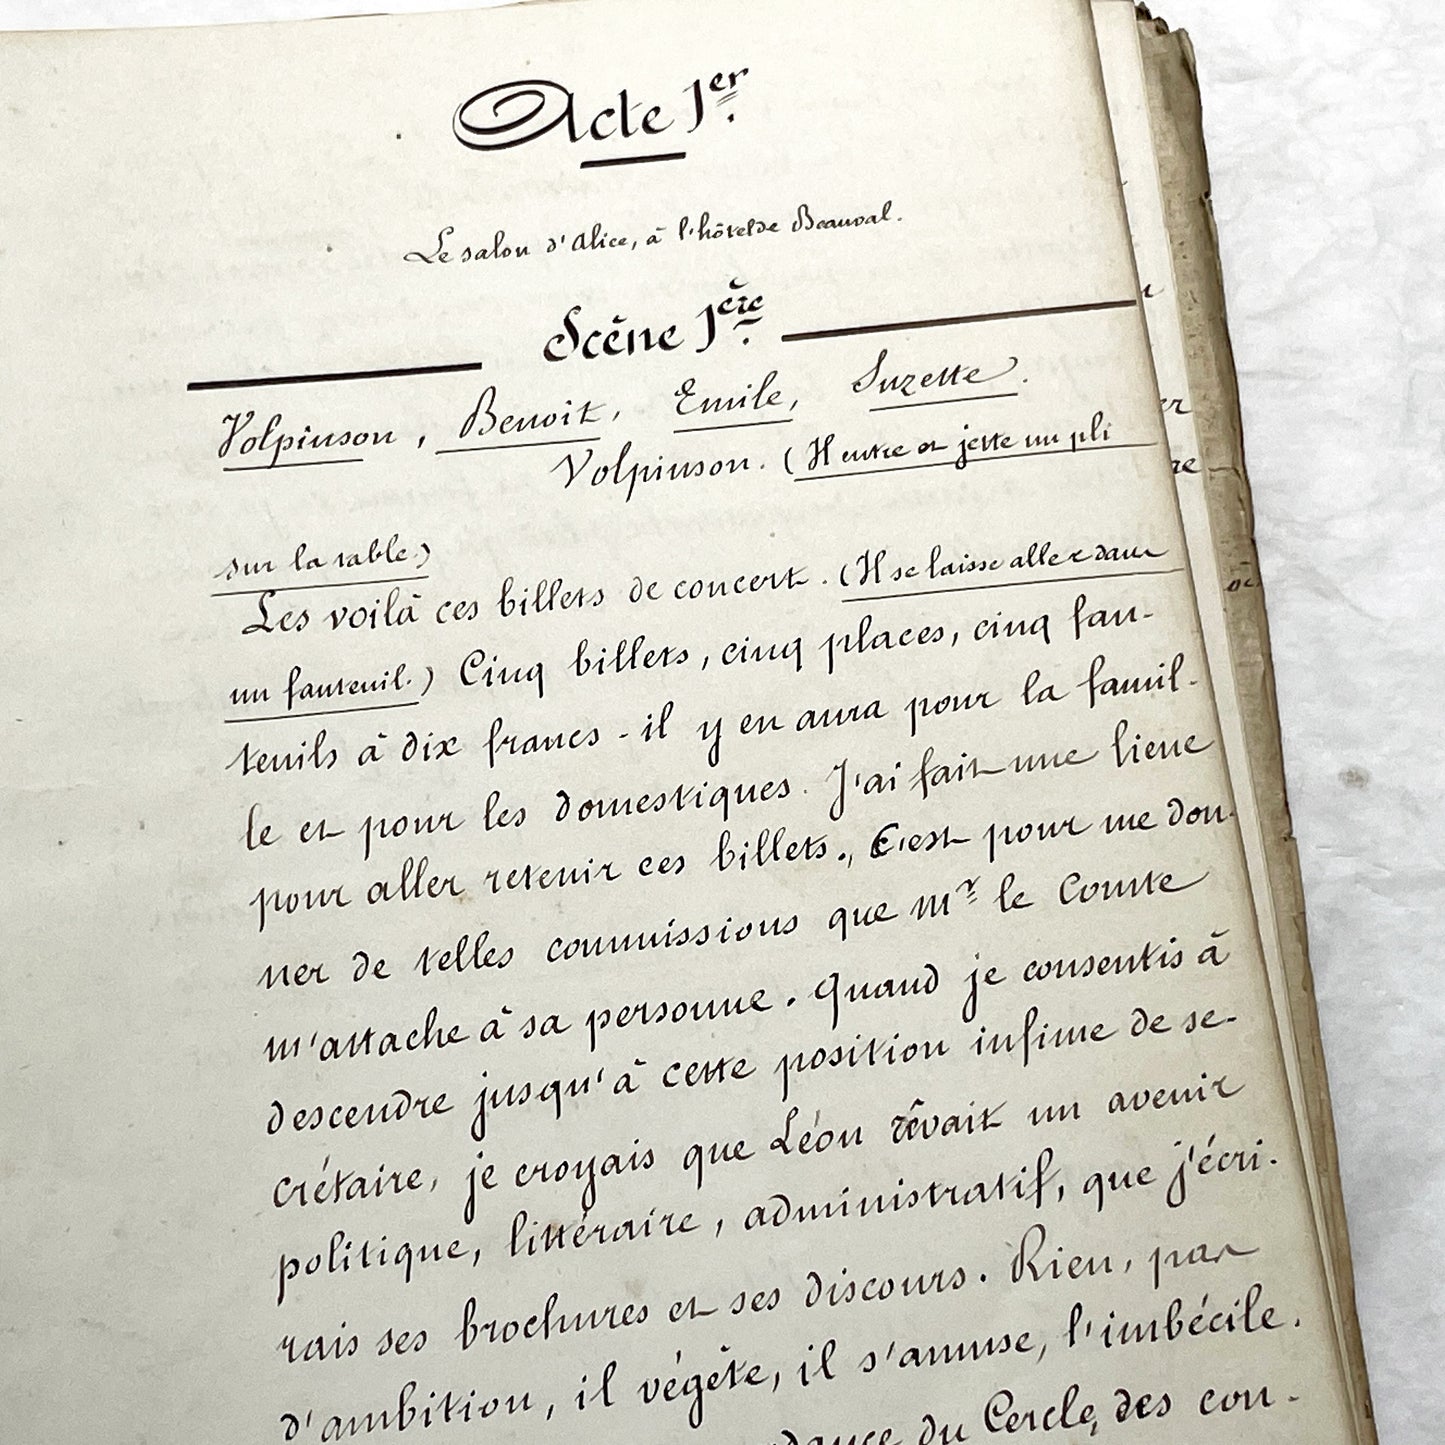 Acte 1er.
Le salon d'Alice, à l'hôtel de Beauval.
Scène 1ère.
Volpinson, Benoit, Emile, Suzette.
Volpinson. (Il entre et jette un pli
sur la table.)
Les voilà ces billets de concert. (Il se laisse aller dans
un fauteuil.) Cinq billets, cinq places, cinq fau-
teuils à dix francs - il y en aura pour la famil-
le et pour les domestiques. J'ai fait une lieue
pour aller retenir ces billets., C'est pour me don-
ner de telles commissions que Mr le Comte
m'attache à sa personne. Quand je consentis à
descendre jusqu'à cette position infime de se-
crétaire, je croyais que Léon rêvait un avenir
politique, littéraire, administratif, que j'écri-
rais ses brochures et ses discours. Rien, pas
d'ambition, il végète, il s'amuse, l'imbécile.
du Cercle, des con-